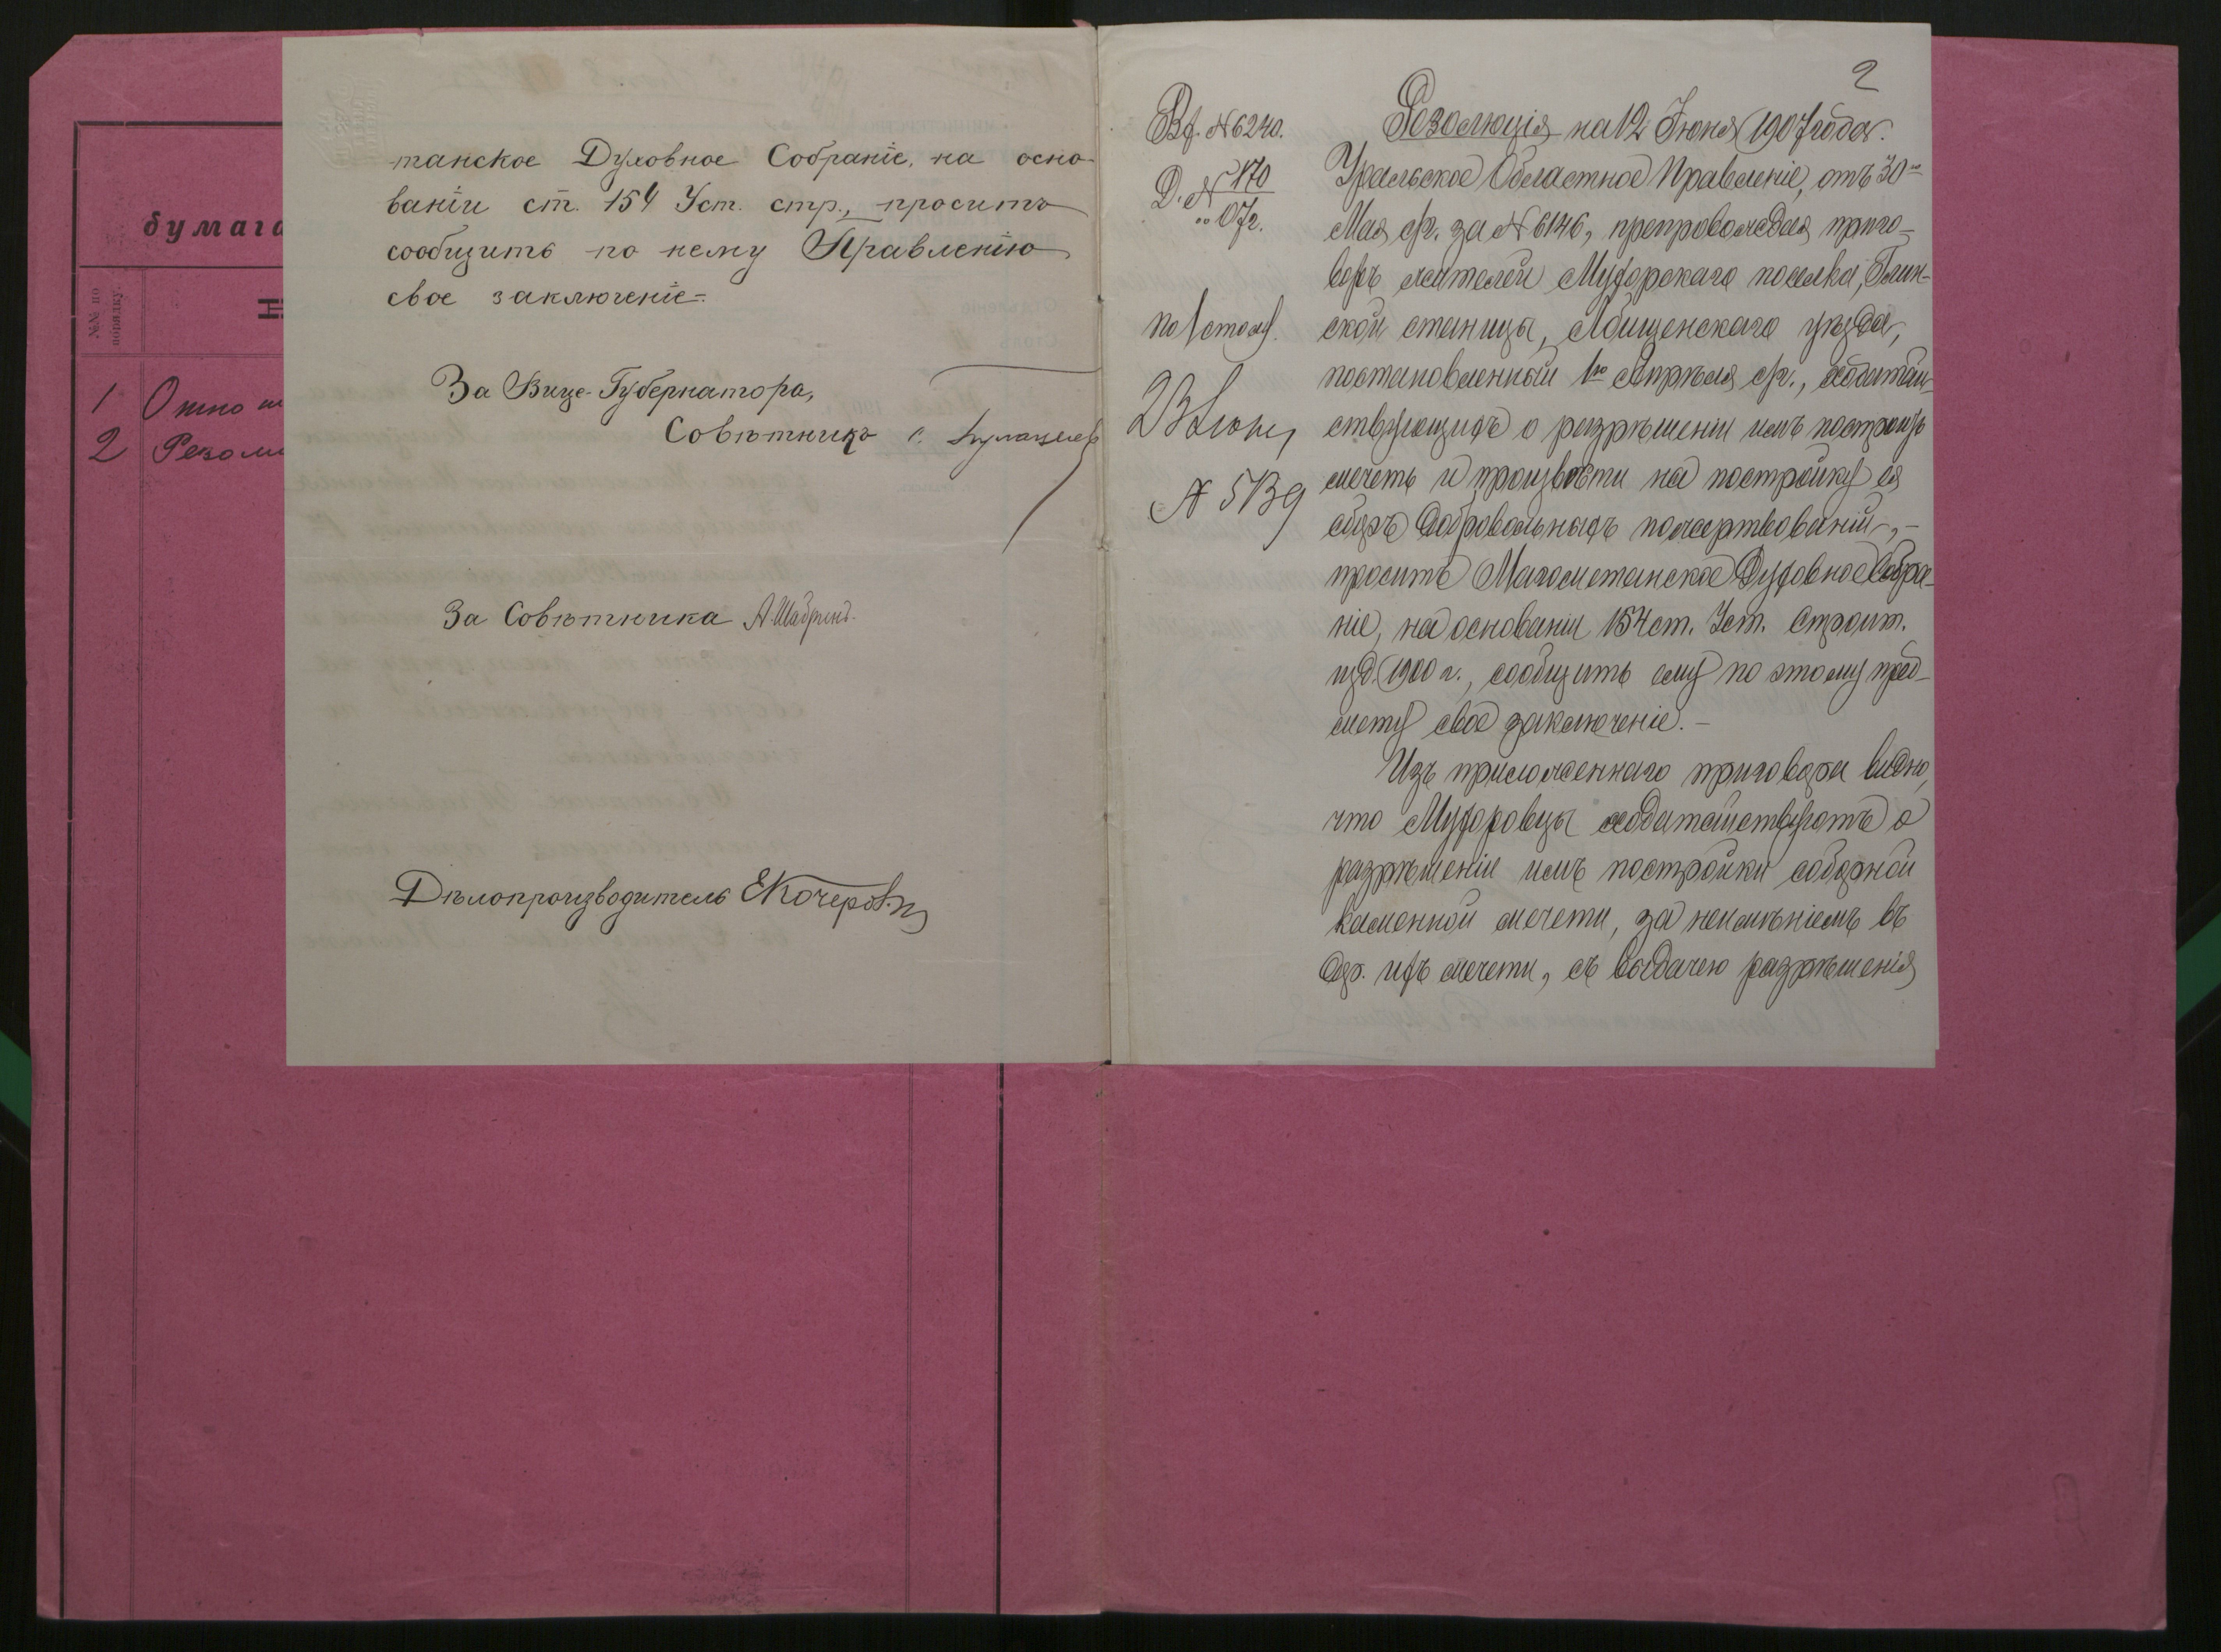 бумага
№№ по
порядку.
1 Отно
2 Резолю
танское Духовное Собраніе, на осно-
ваніи ст. 154 Уст. стр., проситъ
сообщить по нему Правленію
свое заключеніе.
За Вице-Губернатора,
Совѣтникъ
За Совѣтника А. Шабринъ.
Дѣлопроизводитель Е Кочеров
2
Вх. № 6240.
Д. № 170
07г.
По 1 столу.
23 Іюня
№ 5139
Резолюція на 12 Іюня 1907 года.
Уральское Областное Правленіе, отъ 30го
Мая с/г. за № 6146, препровождая приго-
воръ жителей Мухорскаго поселка, Глин-
ской станицы, Лбищенскаго уѣзда,
постановленный 1го Апрѣля с/г., ходатай-
ствующихъ о разрѣшеніи имъ построить
мечеть и произвести на постройку ея
сборъ добровольныхъ пожертвованій, -
проситъ Магометанское Духовное Собра-
ніе, на основаніи 154 ст. Уст. Строит.
изд. 1900 г., сообщить ему по этому пред-
мету свое заключеніе. -
Изъ приложеннаго приговора видно,
что Мухоровцы ходатайствуютъ о
разрѣшеніи имъ постройки соборной
каменной мечети, за неимѣніемъ въ
ихъ мечети, съ выдачею разрѣшенія